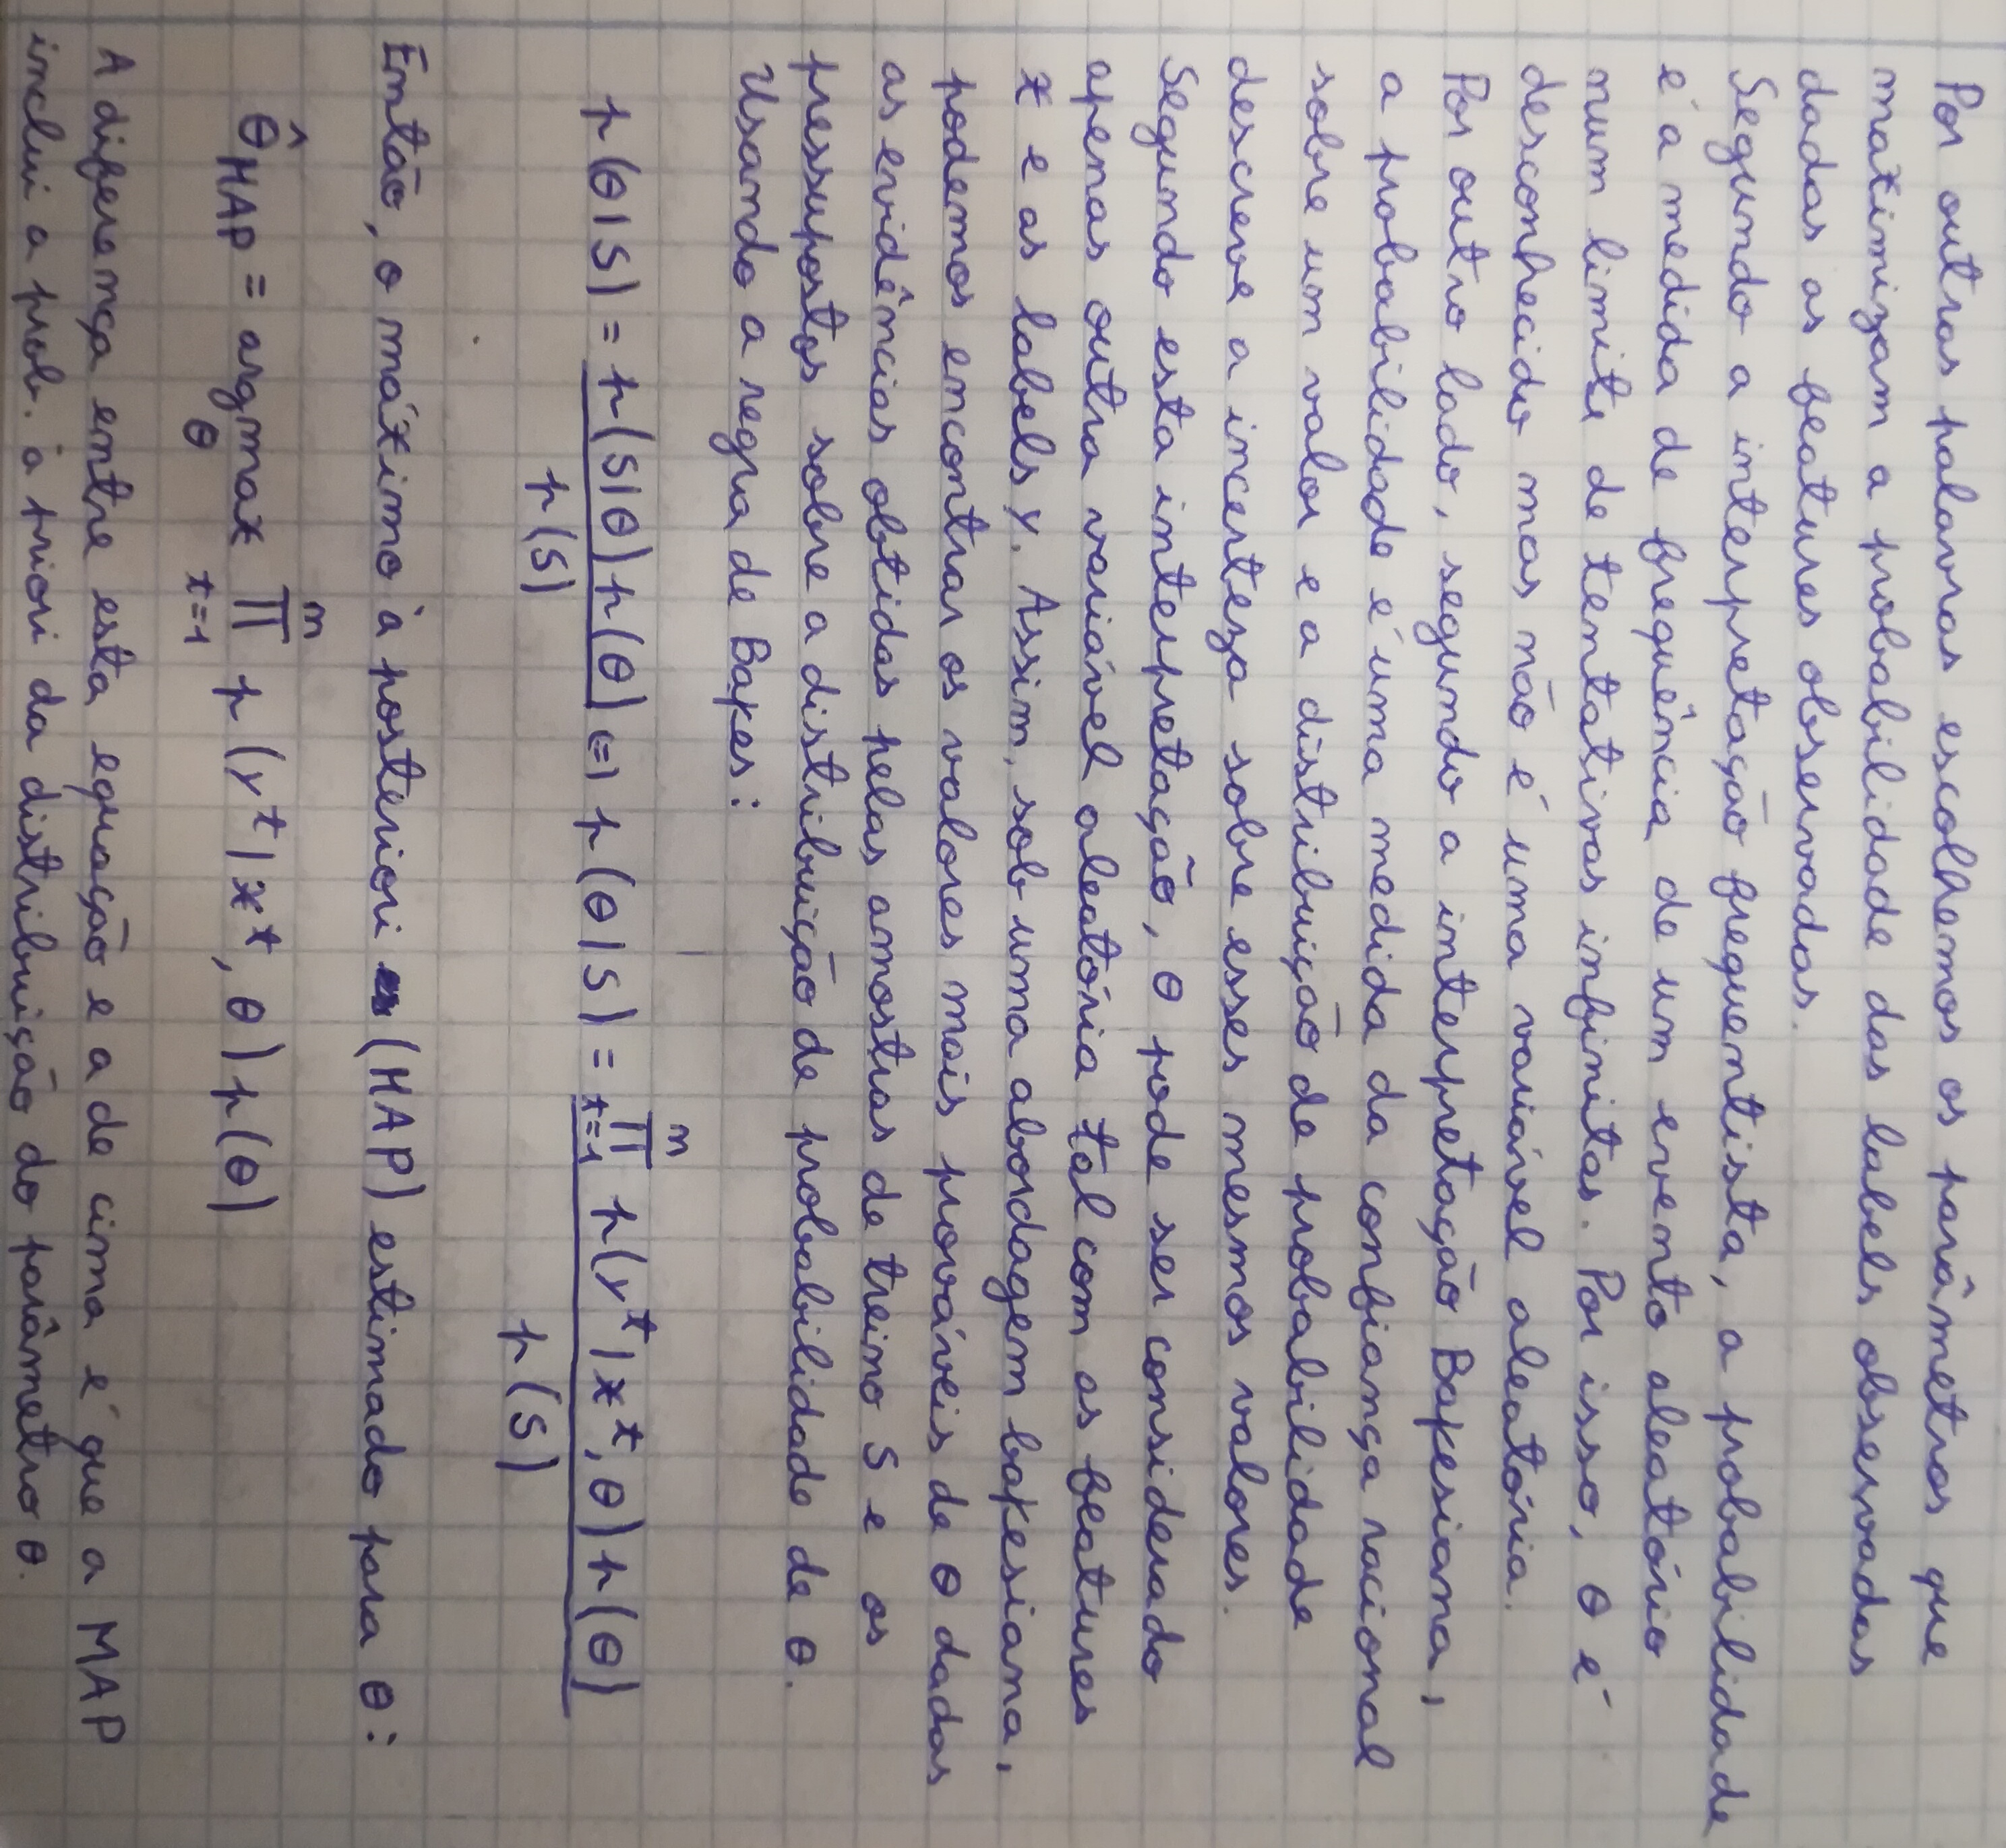 Por outras palavras escolhemos os parâmetros que
maximizam a probabilidade das labels observadas
dadas as features observadas.
Segundo a interpretação frequentista, a probabilidade
é a medida de frequência de um evento aleatório
num limite de tentativas infinitas. Por isso, θ é
desconhecido mas não é uma variável aleatória.
Por outro lado, segundo a interpretação Bayesiana,
a probabilidade é uma medida da confiança racional
sobre um valor e a distribuição de probabilidade
descreve a incerteza sobre esses mesmos valores.
Segundo esta interpretação, θ pode ser considerado
apenas outra variável aleatória tal com as features
x e as labels y. Assim, sob uma abordagem bayesiana,
podemos encontrar os valores mais prováveis de θ dadas
as evidências obtidas pelas amostras de treino S e os
pressupostos sobre a distribuição de probabilidade de θ.
Usando a regra de Bayes:
p(θ|S) = p(S|θ)p(θ) / p(S) (=) p(θ|S) = ∏ᵗ⁼¹ⁿ p(yᵗ|xᵗ,θ)p(θ) / p(S)
Então, o máximo à posteriori (MAP) estimado para θ:
θ̂MAP = argmax_θ ∏ᵗ⁼¹ⁿ p(yᵗ|xᵗ,θ)p(θ)
A diferença entre esta equação e a de cima é que a MAP
inclui a prob. à priori da distribuição do parâmetro θ.